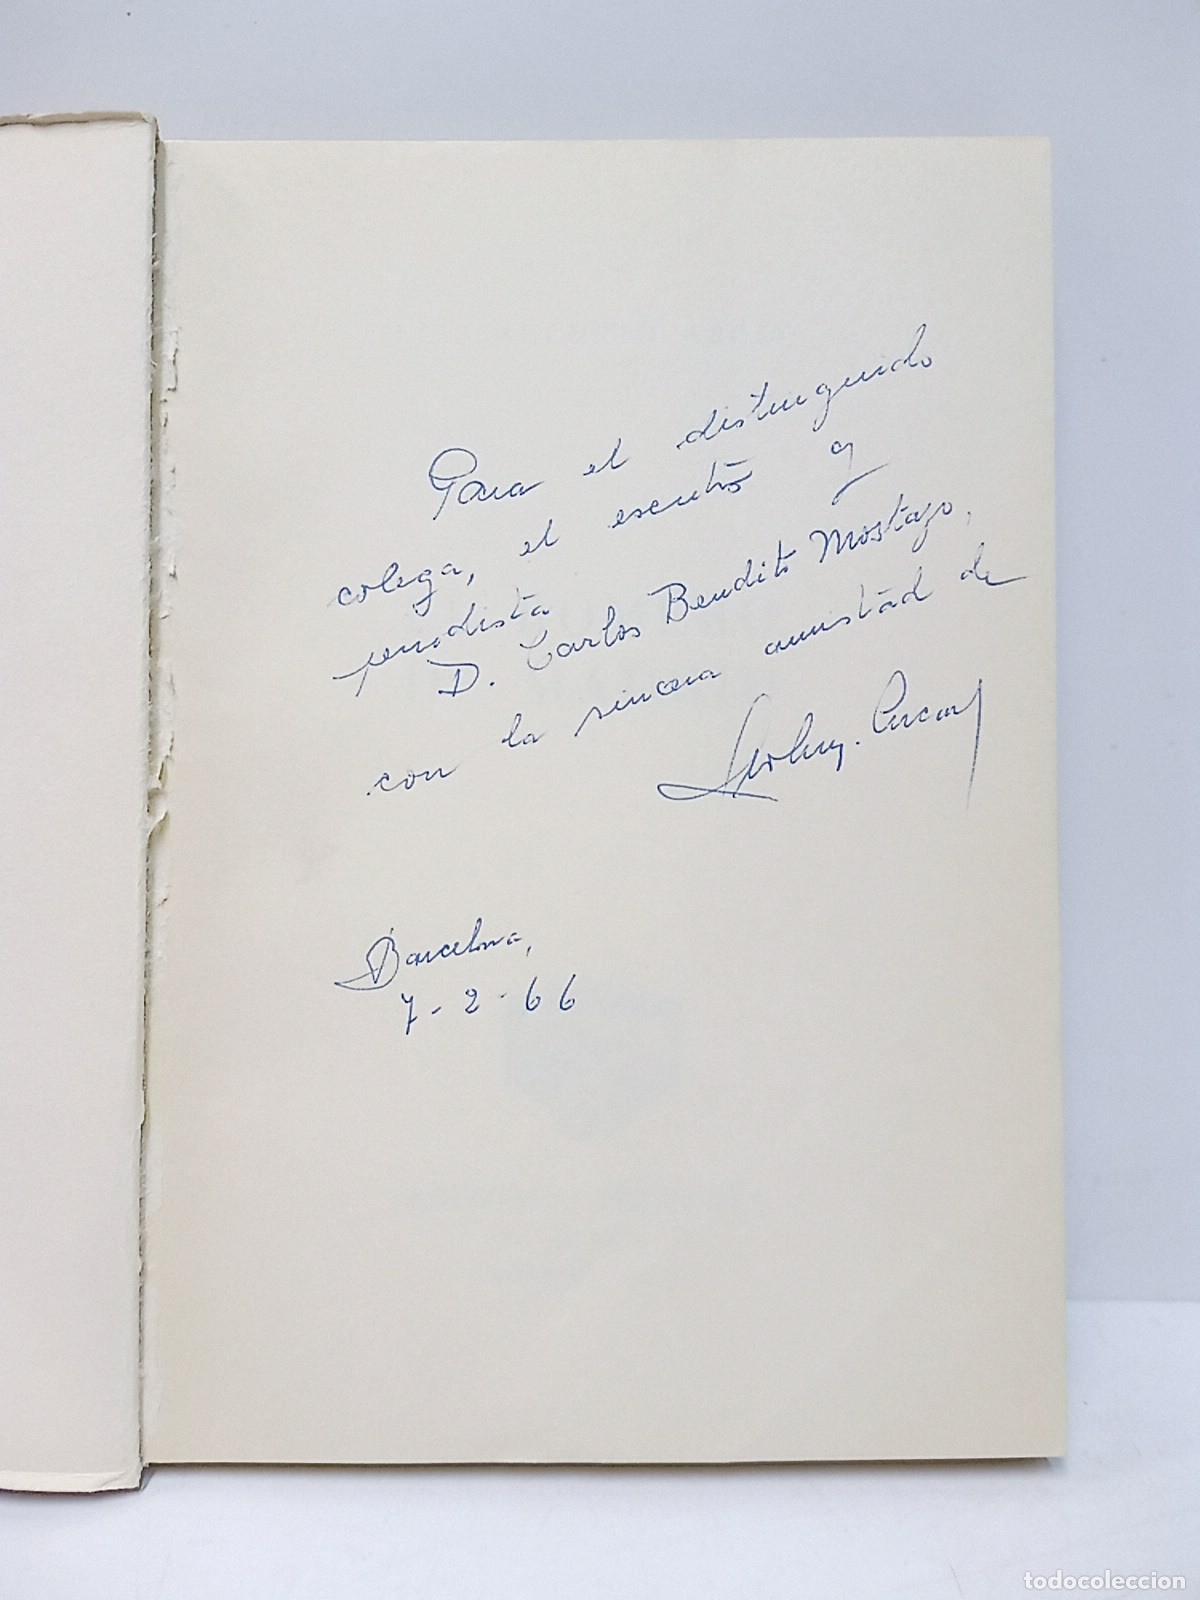 Para el distinguido
colega, el escritor y
periodista
D. Carlos Bendito Mostazo,
con la sincera amistad de
Barcelona,
7-2-66
todocoleccion